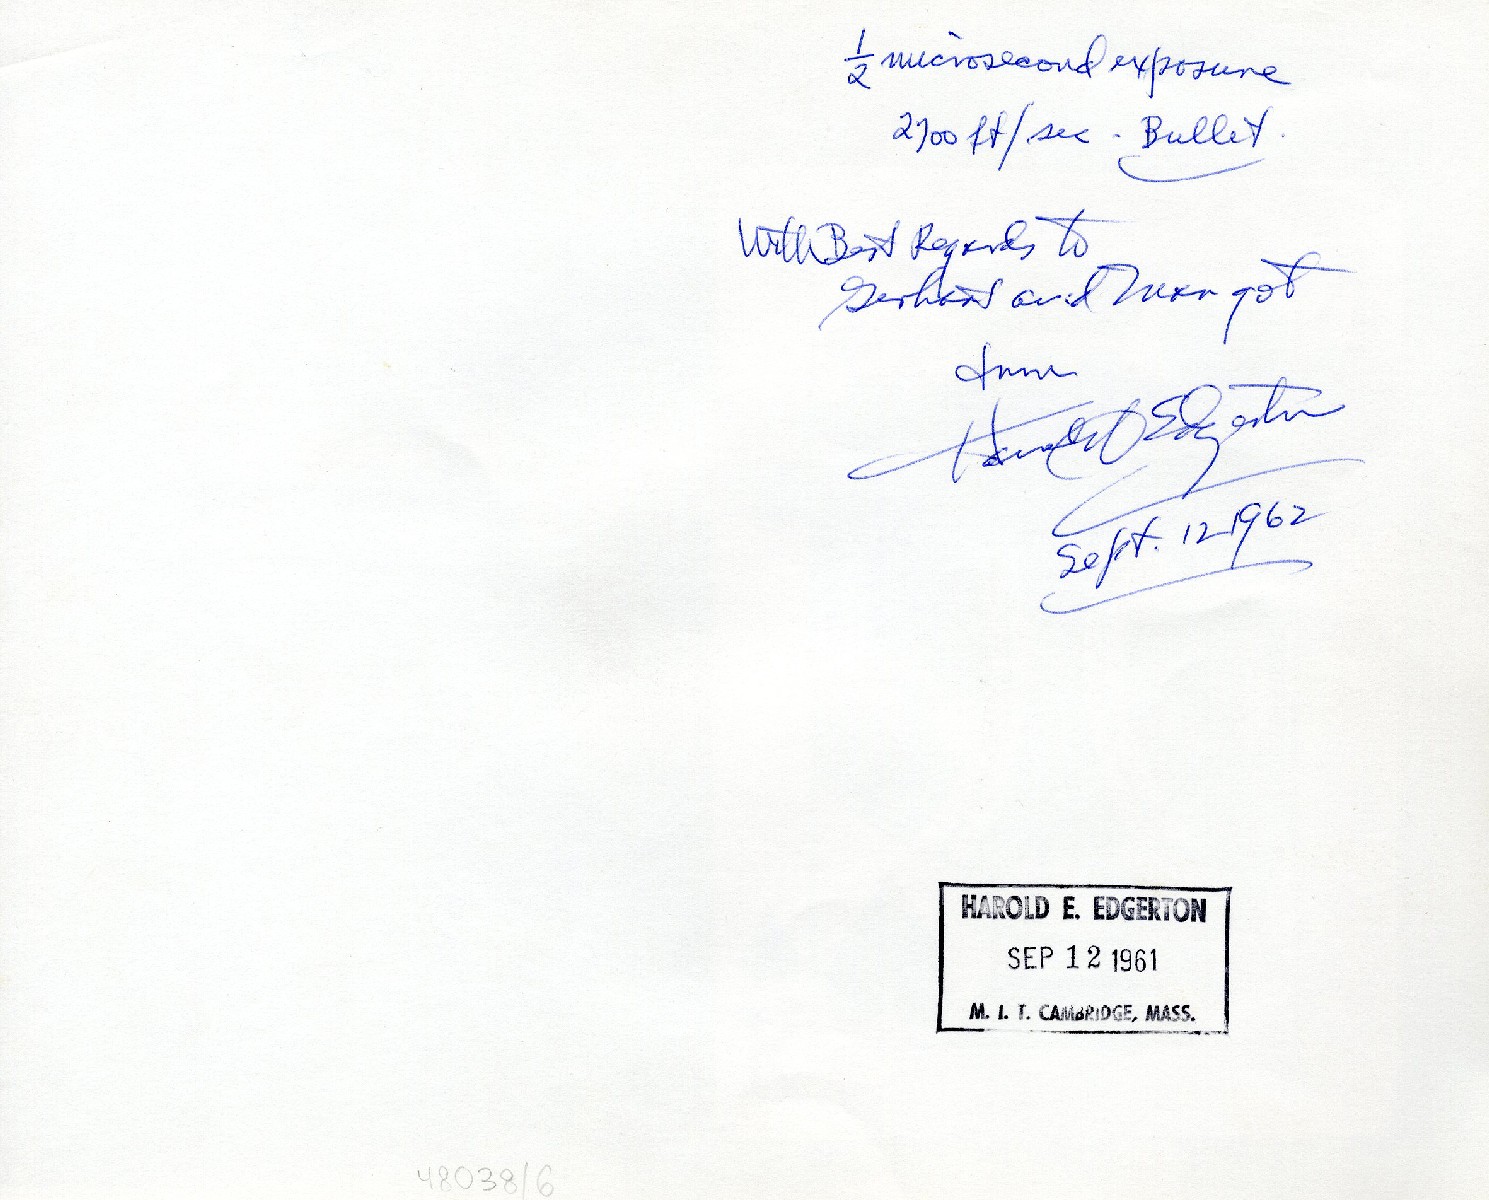 ½ microsecond exposure
2700 ft/sec - Bullet.
With Best Regards to
Gerhard and Margot
from
Harold Edgerton
Sept. 12 1962
HAROLD E. EDGERTON
SEP 12 1961
M. I. T. CAMBRIDGE, MASS.
48038/6